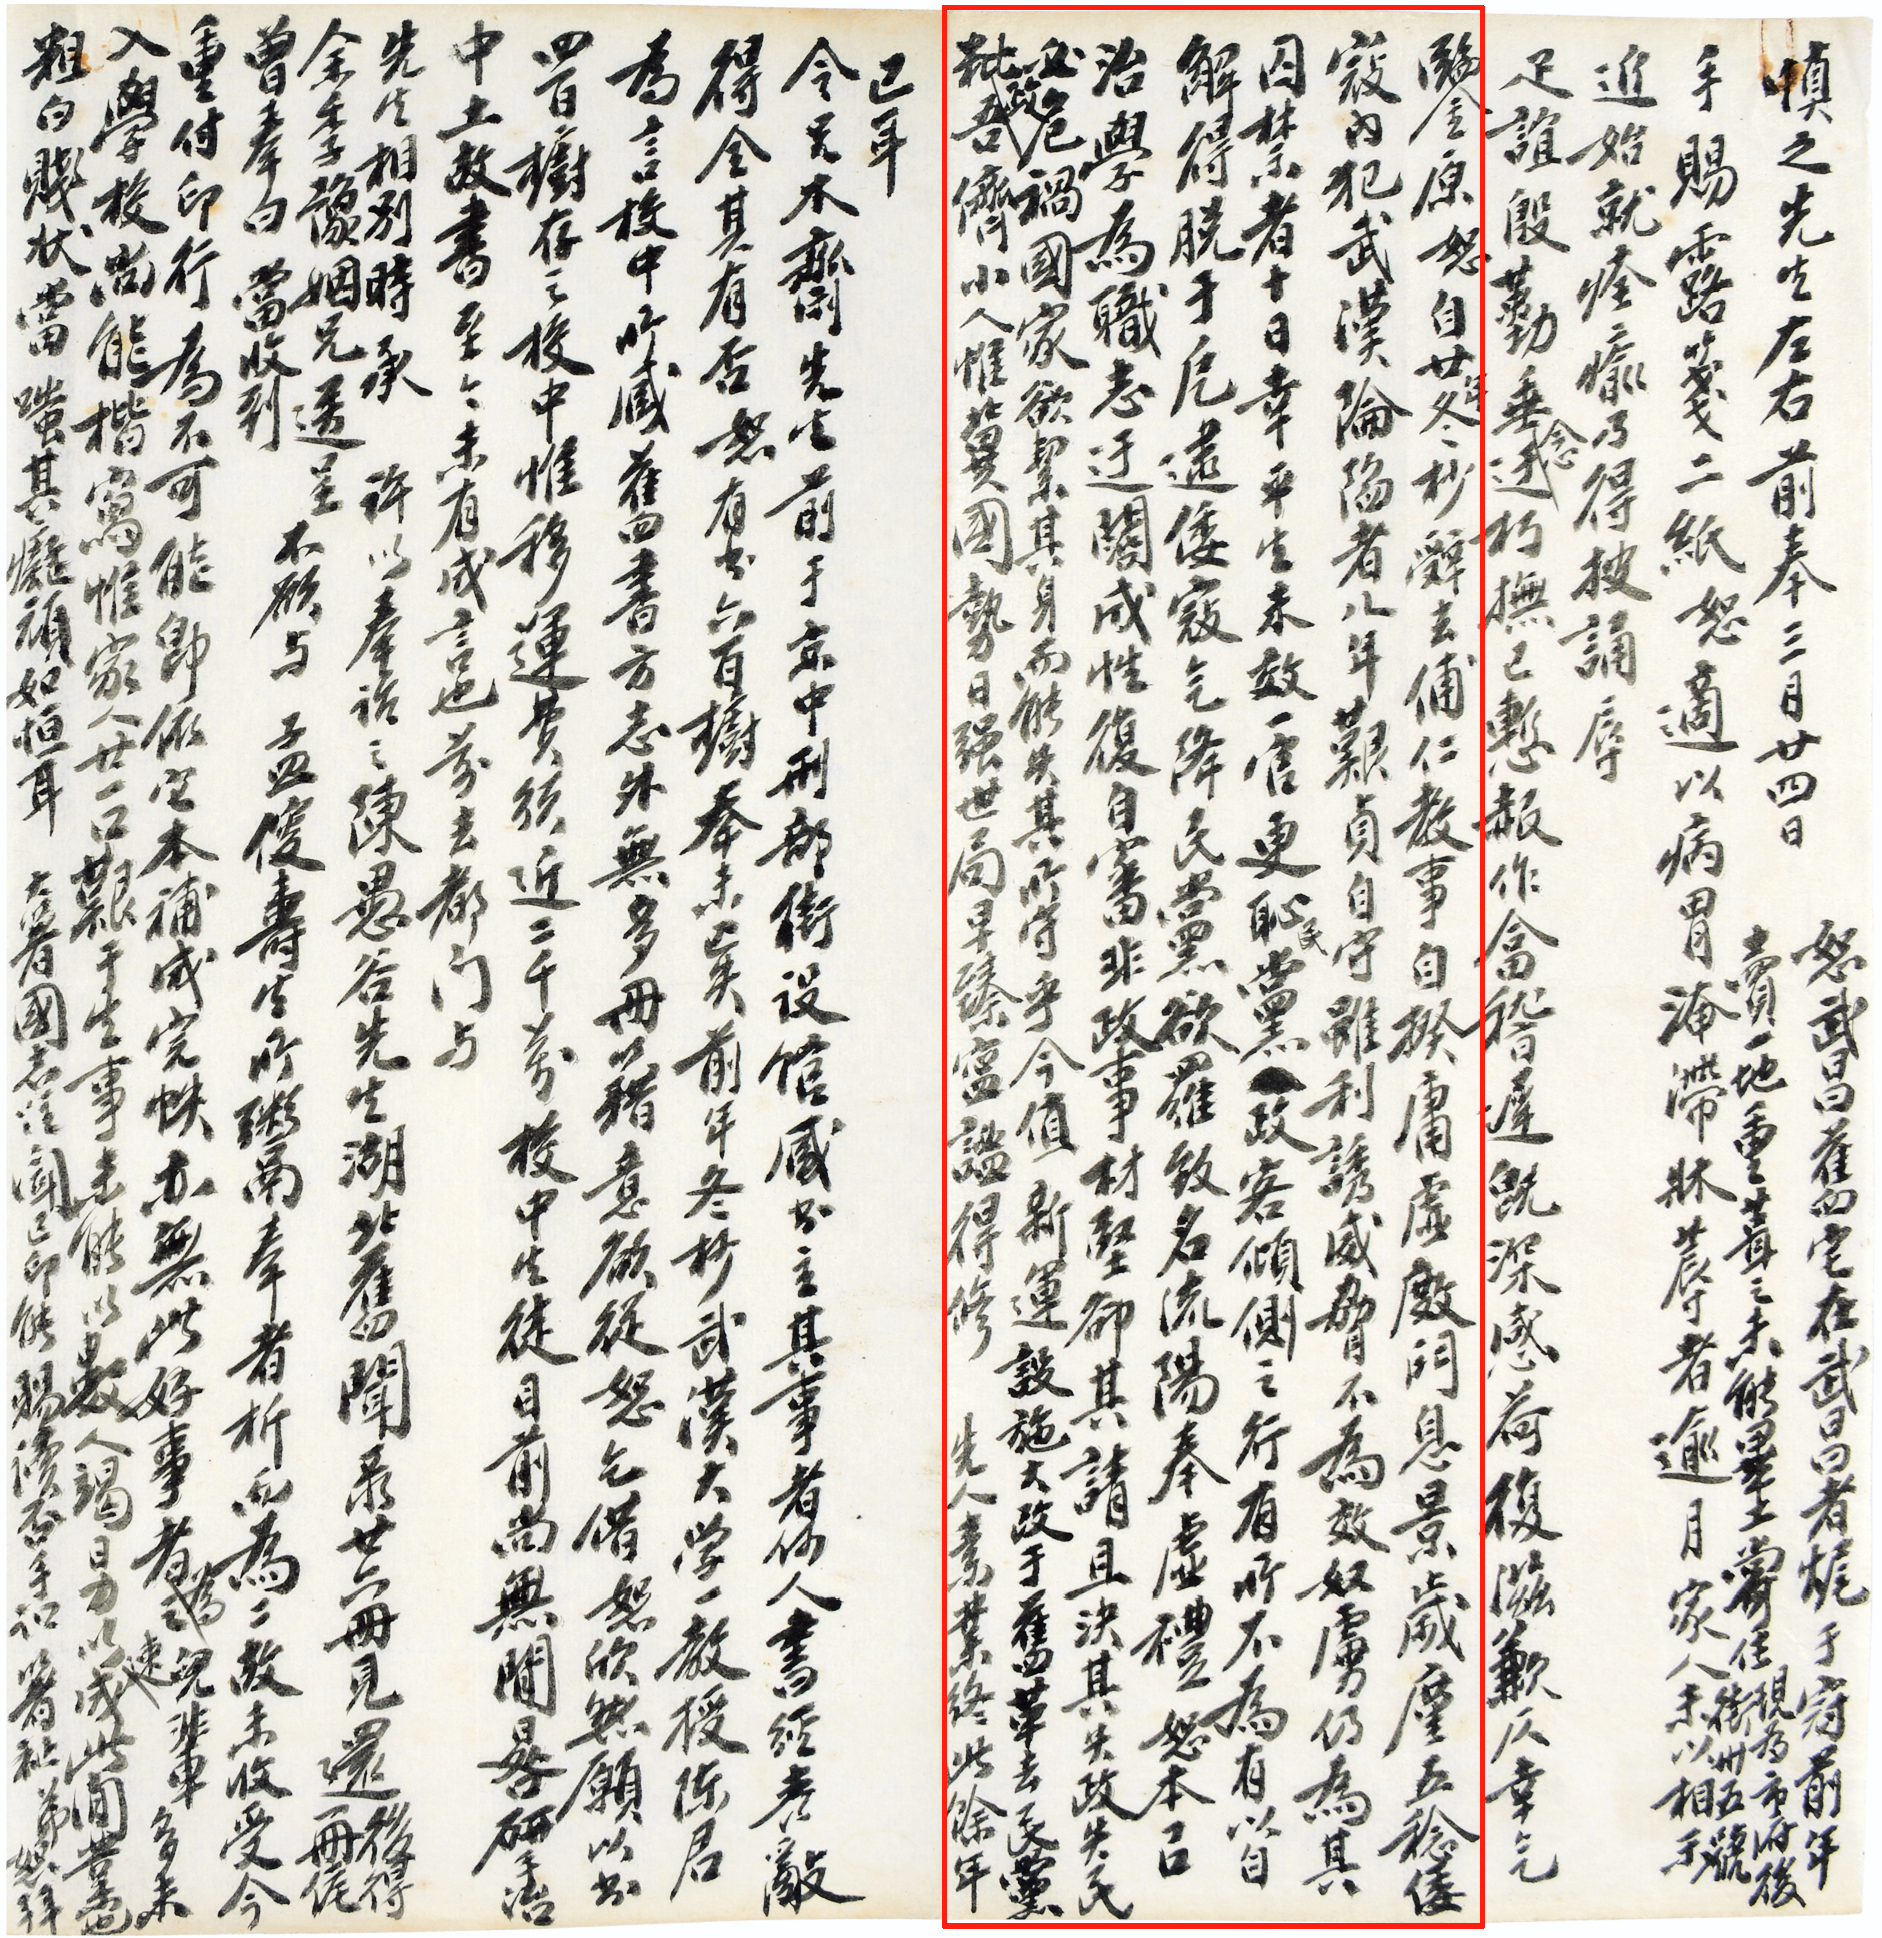 慎之先生左右前奉三月廿四日
手賜露箋二紙恕適以病胃滯牀蓐者逾月家人未以相示
近始就痊瘉乃得披誦辱
足誼殷勤垂念逮朽撫己慙赧作畣稽遲既深感荷復滋歉仄幸乞
恕武昌舊宅在武昌者燬于寇前年
賣一地重葺之未能畢土嚮住街卅五號
現為市府後
鑒原恕自廿年冬杪辭去俌仁教事自揆庸虛廢門息景歲廑五稔倭
寇內犯武漢陷者八年艱貞自守雖利誘威脅不為效奴虜仍為其
囚禁者十日幸平生未效一官更恥民黨政客傾側之行有所不為有以自
解得脱于戹逮倭寇乞降民黨欲羅致名流陽奉虛禮恕本以
治學為職志迂闊成性復自審非政事材堅卻其請且決其失政失民
必危禍國家欲絜其身而能失其所守乎今值新運設施大政于舊革去民黨
秕政吾儕小人惟冀國勢日強世局早臻寧謐得修先人素業終此餘年
已耳
令兄木齋先生前于京中刑部街設館臧書主其事者何人書經寇敵
得全其有否恕有書六百樹奉未已矣前年冬杪武漢大學一教授陳君
為言校中所臧舊書方志外無多冊籍意欲從恕乞借恕欣然願以書
四百樹存之校中惟移運費須近二千萬校中生徒日前尚無閒晷研治
中土故書至今未有成言也前去都门与
先生相別時承許以奉詒之陳愚谷先生湖北舊聞录廿六冊見還後得
余季豫姻兄送呈一冊俟
曾奉白當收到不欲与孟優壽生所鬻奉者析而為二故未收受今
重付印行為不可能即依它本補成完帙亦無此好事者為之速兒輩多未
入學校尚能楷寫惟家人廿一口艱于生事未能以數人竭日力以成此
粗白賤狀當嗤其癡頑如恒耳大著國志注聞已印能賜讀否手訊著祉弟恕拜